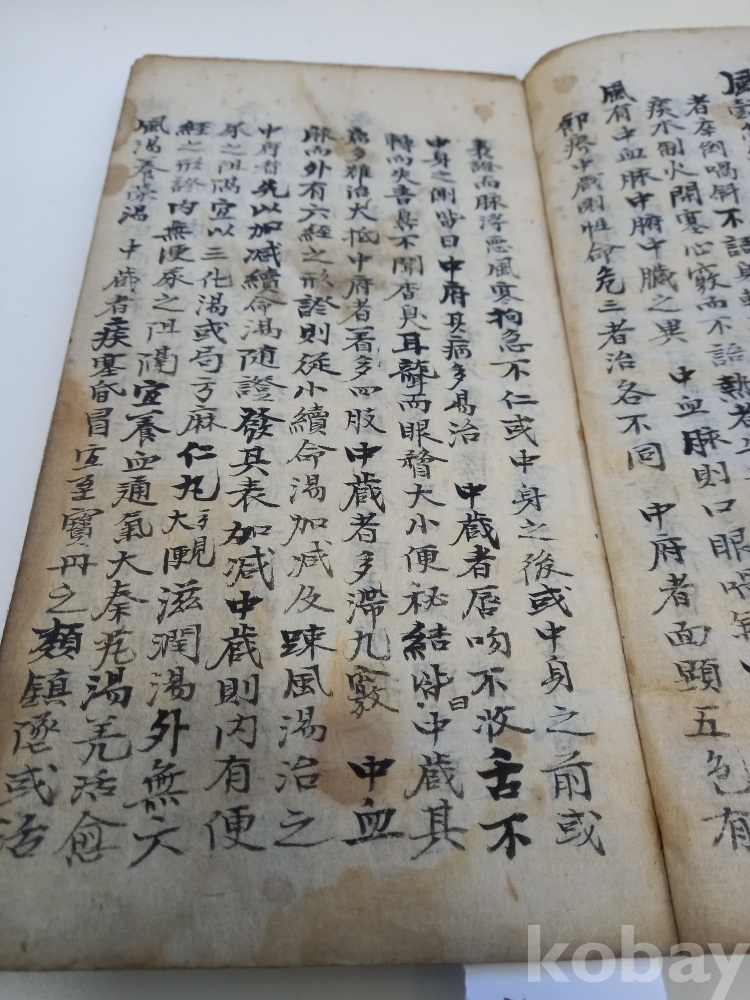 者卒倒喎斜不語
痰水制火閉塞心竅而不語熱者
風有中血脉中腑中臓之異 中血脉則口眼喎
節疼中蔵則性命危三者治各不同 中府者面顕五色有
表證而脉浮惡風寒拘急不仁或中身之後或中身之前或
中身之側皆曰中府其病多易治 中蔵者唇吻不收舌不
轉而失音鼻不聞香臭耳聾而眼瞀大小便秘結皆曰中蔵其
病多難治大抵中府者着多四股中蔵者多滯九竅 中血
脉而外有六經之形證則從小續命湯加减及踈風湯治之
中府者先以加减續命湯随證發其表加减中蔵則内有便
尿之阻隔宜以三化湯或局方麻仁丸大便滋潤湯外無六
經之形證内無便尿之阻隔宜養血通氣大秦艽湯羌活愈
風湯養榮湯 中蔵者痰塞昏冒宜至寶丹之類鎮墜或活
kobay